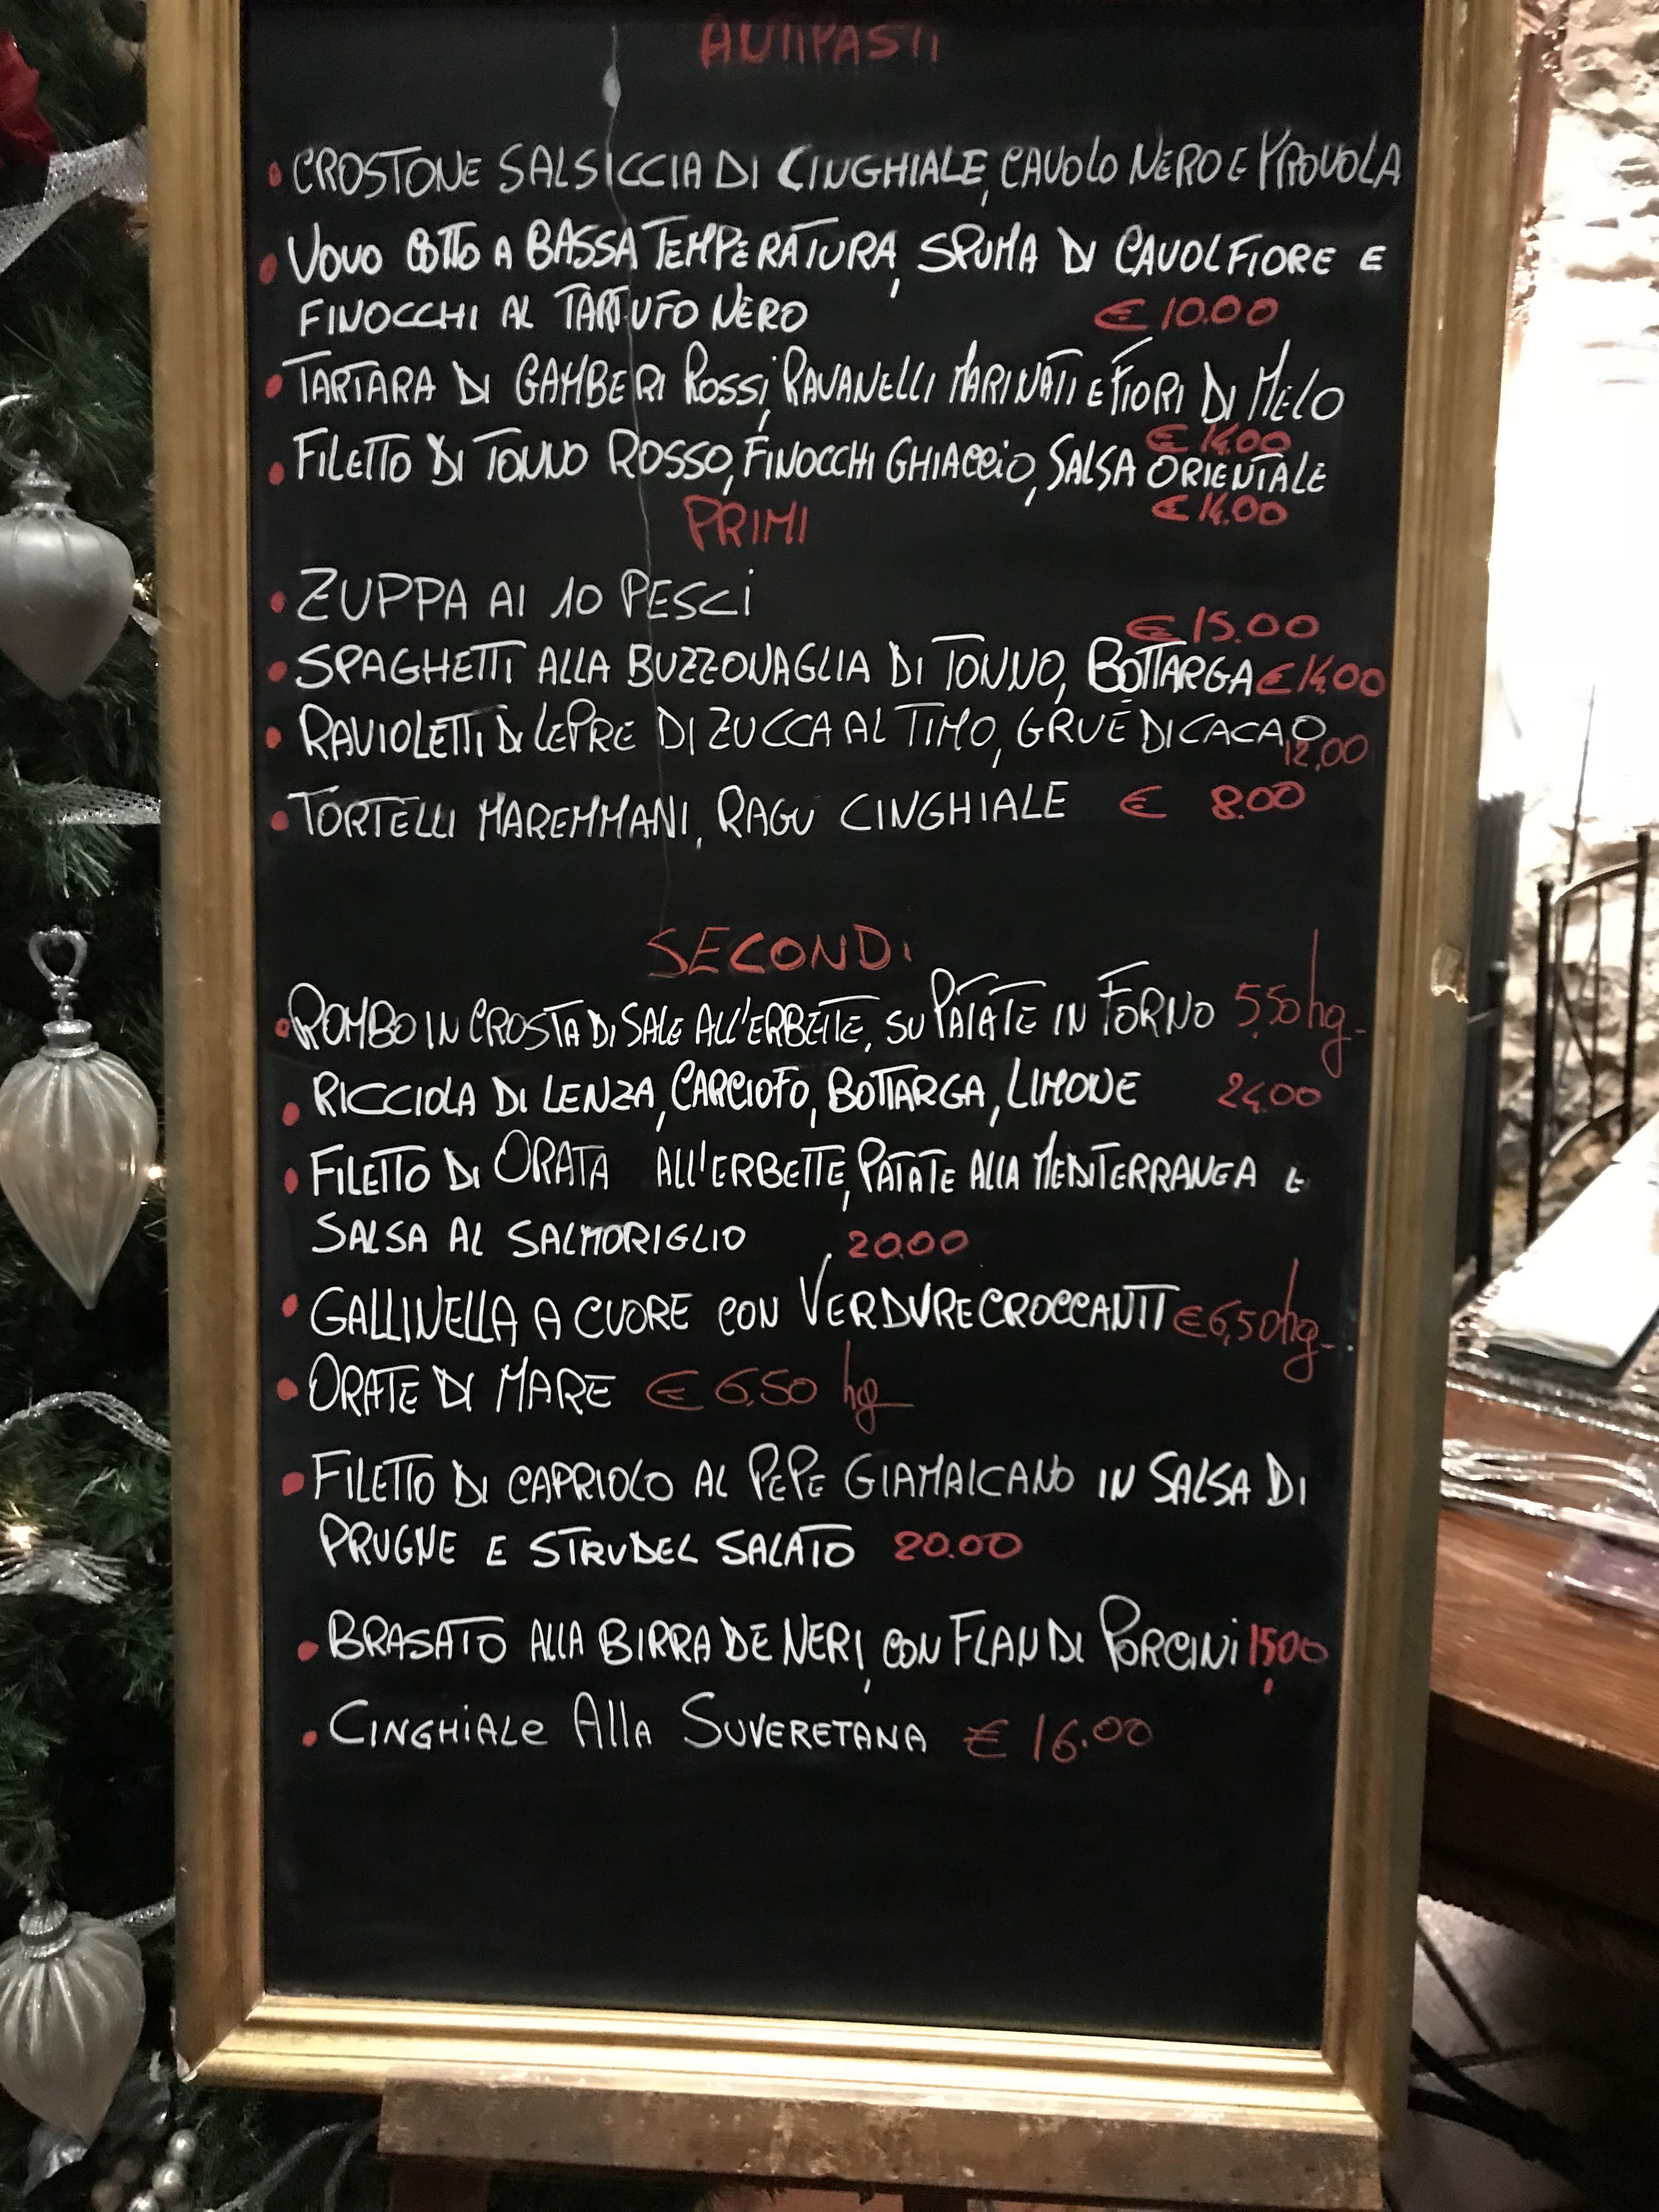 ANTIPASTI
• CROSTONE SALSICCIA DI CINGHIALE, CAVOLO NERO E PROVOLA
• UOVO COTTO A BASSA TEMPERATURA, SPUMA DI CAVOLFIORE E
FINOCCHI AL TARTUFO NERO € 10.00
• TARTARA DI GAMBERI ROSSI, RAVANELLI MARINATI E FIORI DI MELO
€ 14.00
• FILETTO DI TONNO ROSSO, FINOCCHI GHIACCIO, SALSA ORIENTALE
€ 14.00
PRIMI
• ZUPPA AI 10 PESCI
€ 15.00
• SPAGHETTI ALLA BUZZONAGLIA DI TONNO, BOTTARGA € 14,00
• RAVIOLETTI DI LEPRE DI ZUCCA AL TIMO, GRUÈ DI CACAO
12,00
• TORTELLI MAREMMANI, RAGU CINGHIALE € 8.00
SECONDI
• ROMBO IN CROSTA DI SALE ALL'ERBETTE, SU PATATE IN FORNO 5,50 hg
• RICCIOLA DI LENZA, CARCIOFO, BOTTARGA, LIMONE 24,00
• FILETTO DI ORATA ALL'ERBETTE, PATATE ALLA MEDITERRANEA E
SALSA AL SALMORIGLIO 20.00
• GALLINELLA A CUORE CON VERDURE CROCCANTI € 6,50 hg
• ORATE DI MARE € 6,50 hg
• FILETTO DI CAPRIOLO AL PEPE GIAMAICANO IN SALSA DI
PRUGNE E STRUDEL SALATO 20.00
• BRASATO ALLA BIRRA DE NERI, CON FLAN DI PORCINI 15,00
• CINGHIALE ALLA SUVERETANA € 16.00